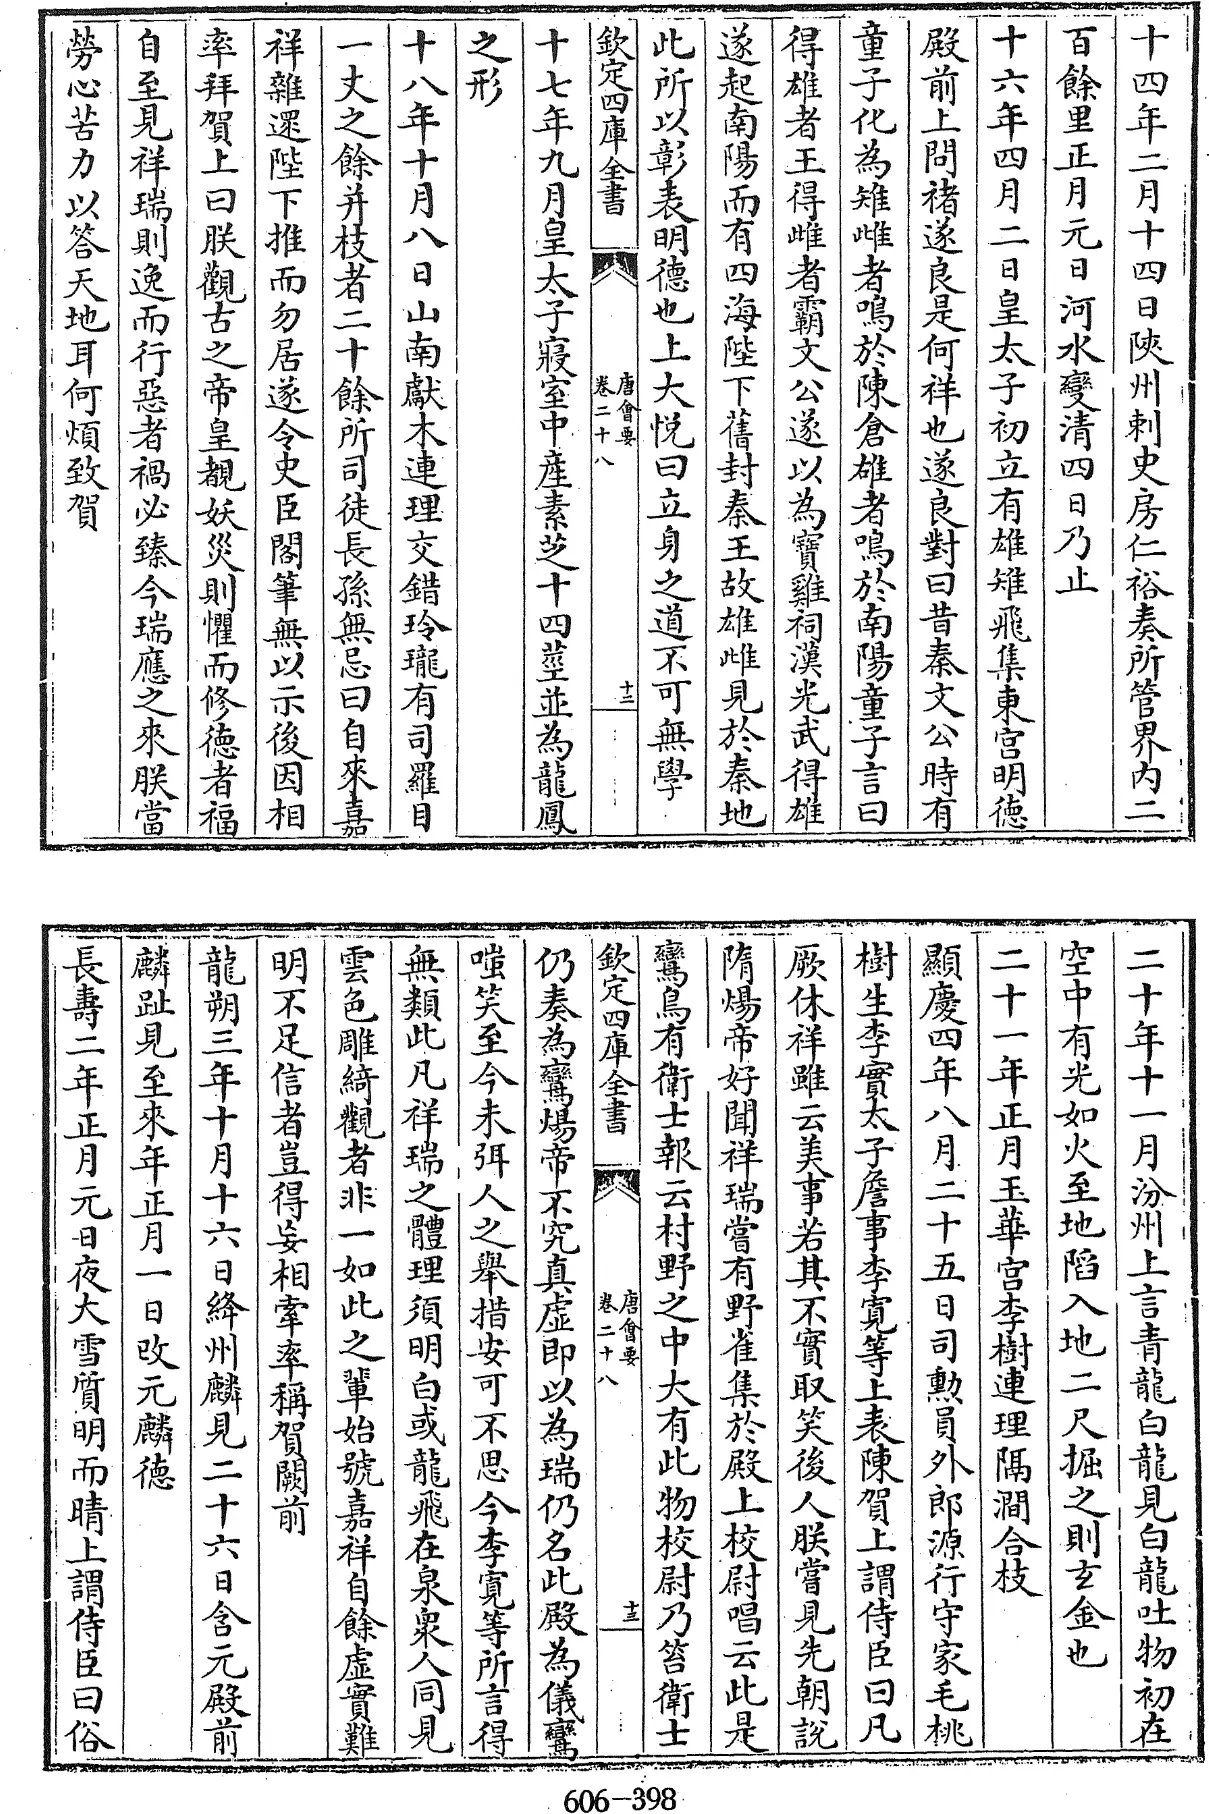 十四年二月十四日陜州刺史房仁裕奏所管界内二
百餘里正月元日河水變清四日乃止
十六年四月二日皇太子初立有雄雉飛集東宮明德
殿前上問禇遂良是何祥也遂良對曰昔秦文公時有
童子化為雉雌者鳴於陳倉雄者鳴於南陽童子言曰
得雄者王得雌者霸文公遂以為寶雞祠漢光武得雄
遂起南陽而有四海陛下舊封秦王故雄雌見於秦地
此所以彰表明德也上大悅曰立身之道不可無學
欽定四庫全書
唐會要
卷二十八
十二
十七年九月皇太子寢室中産素芝十四莖並為龍鳳
之形
十八年十月八日山南獻木連理交錯玲瓏有司羅目
一丈之餘并枝者二十餘所司徒長孫無忌曰自來嘉
祥雜遝陛下推而勿居遂令史臣閣筆無以示後因相
率拜賀上曰朕觀古之帝皇覩妖災則懼而修德者福
自至見祥瑞則逸而行惡者禍必臻今瑞應之來朕當
勞心苦力以答天地耳何煩致賀
二十年十一月汾州上言青龍白龍見白龍吐物初在
空中有光如火至地陷入地二尺掘之則玄金也
二十一年正月玉華宮李樹連理隔澗合枝
顯慶四年八月二十五日司勲員外郎源行守家毛桃
樹生李實太子詹事李寛等上表陳賀上謂侍臣曰凡
厥休祥雖云美事若其不實取笑後人朕嘗見先朝說
隋煬帝好聞祥瑞嘗有野雀集於殿上校尉唱云此是
鸞鳥有衛士報云村野之中大有此物校尉乃笞衛士
欽定四庫全書
唐會要
卷二十八
十三
仍奏為鸞煬帝不究真虚即以為瑞仍名此殿為儀鸞
嗤笑至今未弭人之舉措安可不思今李寛等所言得
無類此凡祥瑞之體理須明白或龍飛在泉衆人同見
雲色雕綺觀者非一如此之輩始號嘉祥自餘虚實難
明不足信者豈得妄相牽率稱賀闕前
龍朔三年十月十六日絳州麟見二十六日含元殿前
麟趾見至來年正月一日改元麟德
長壽二年正月元日夜大雪質明而晴上謂侍臣曰俗
606-398